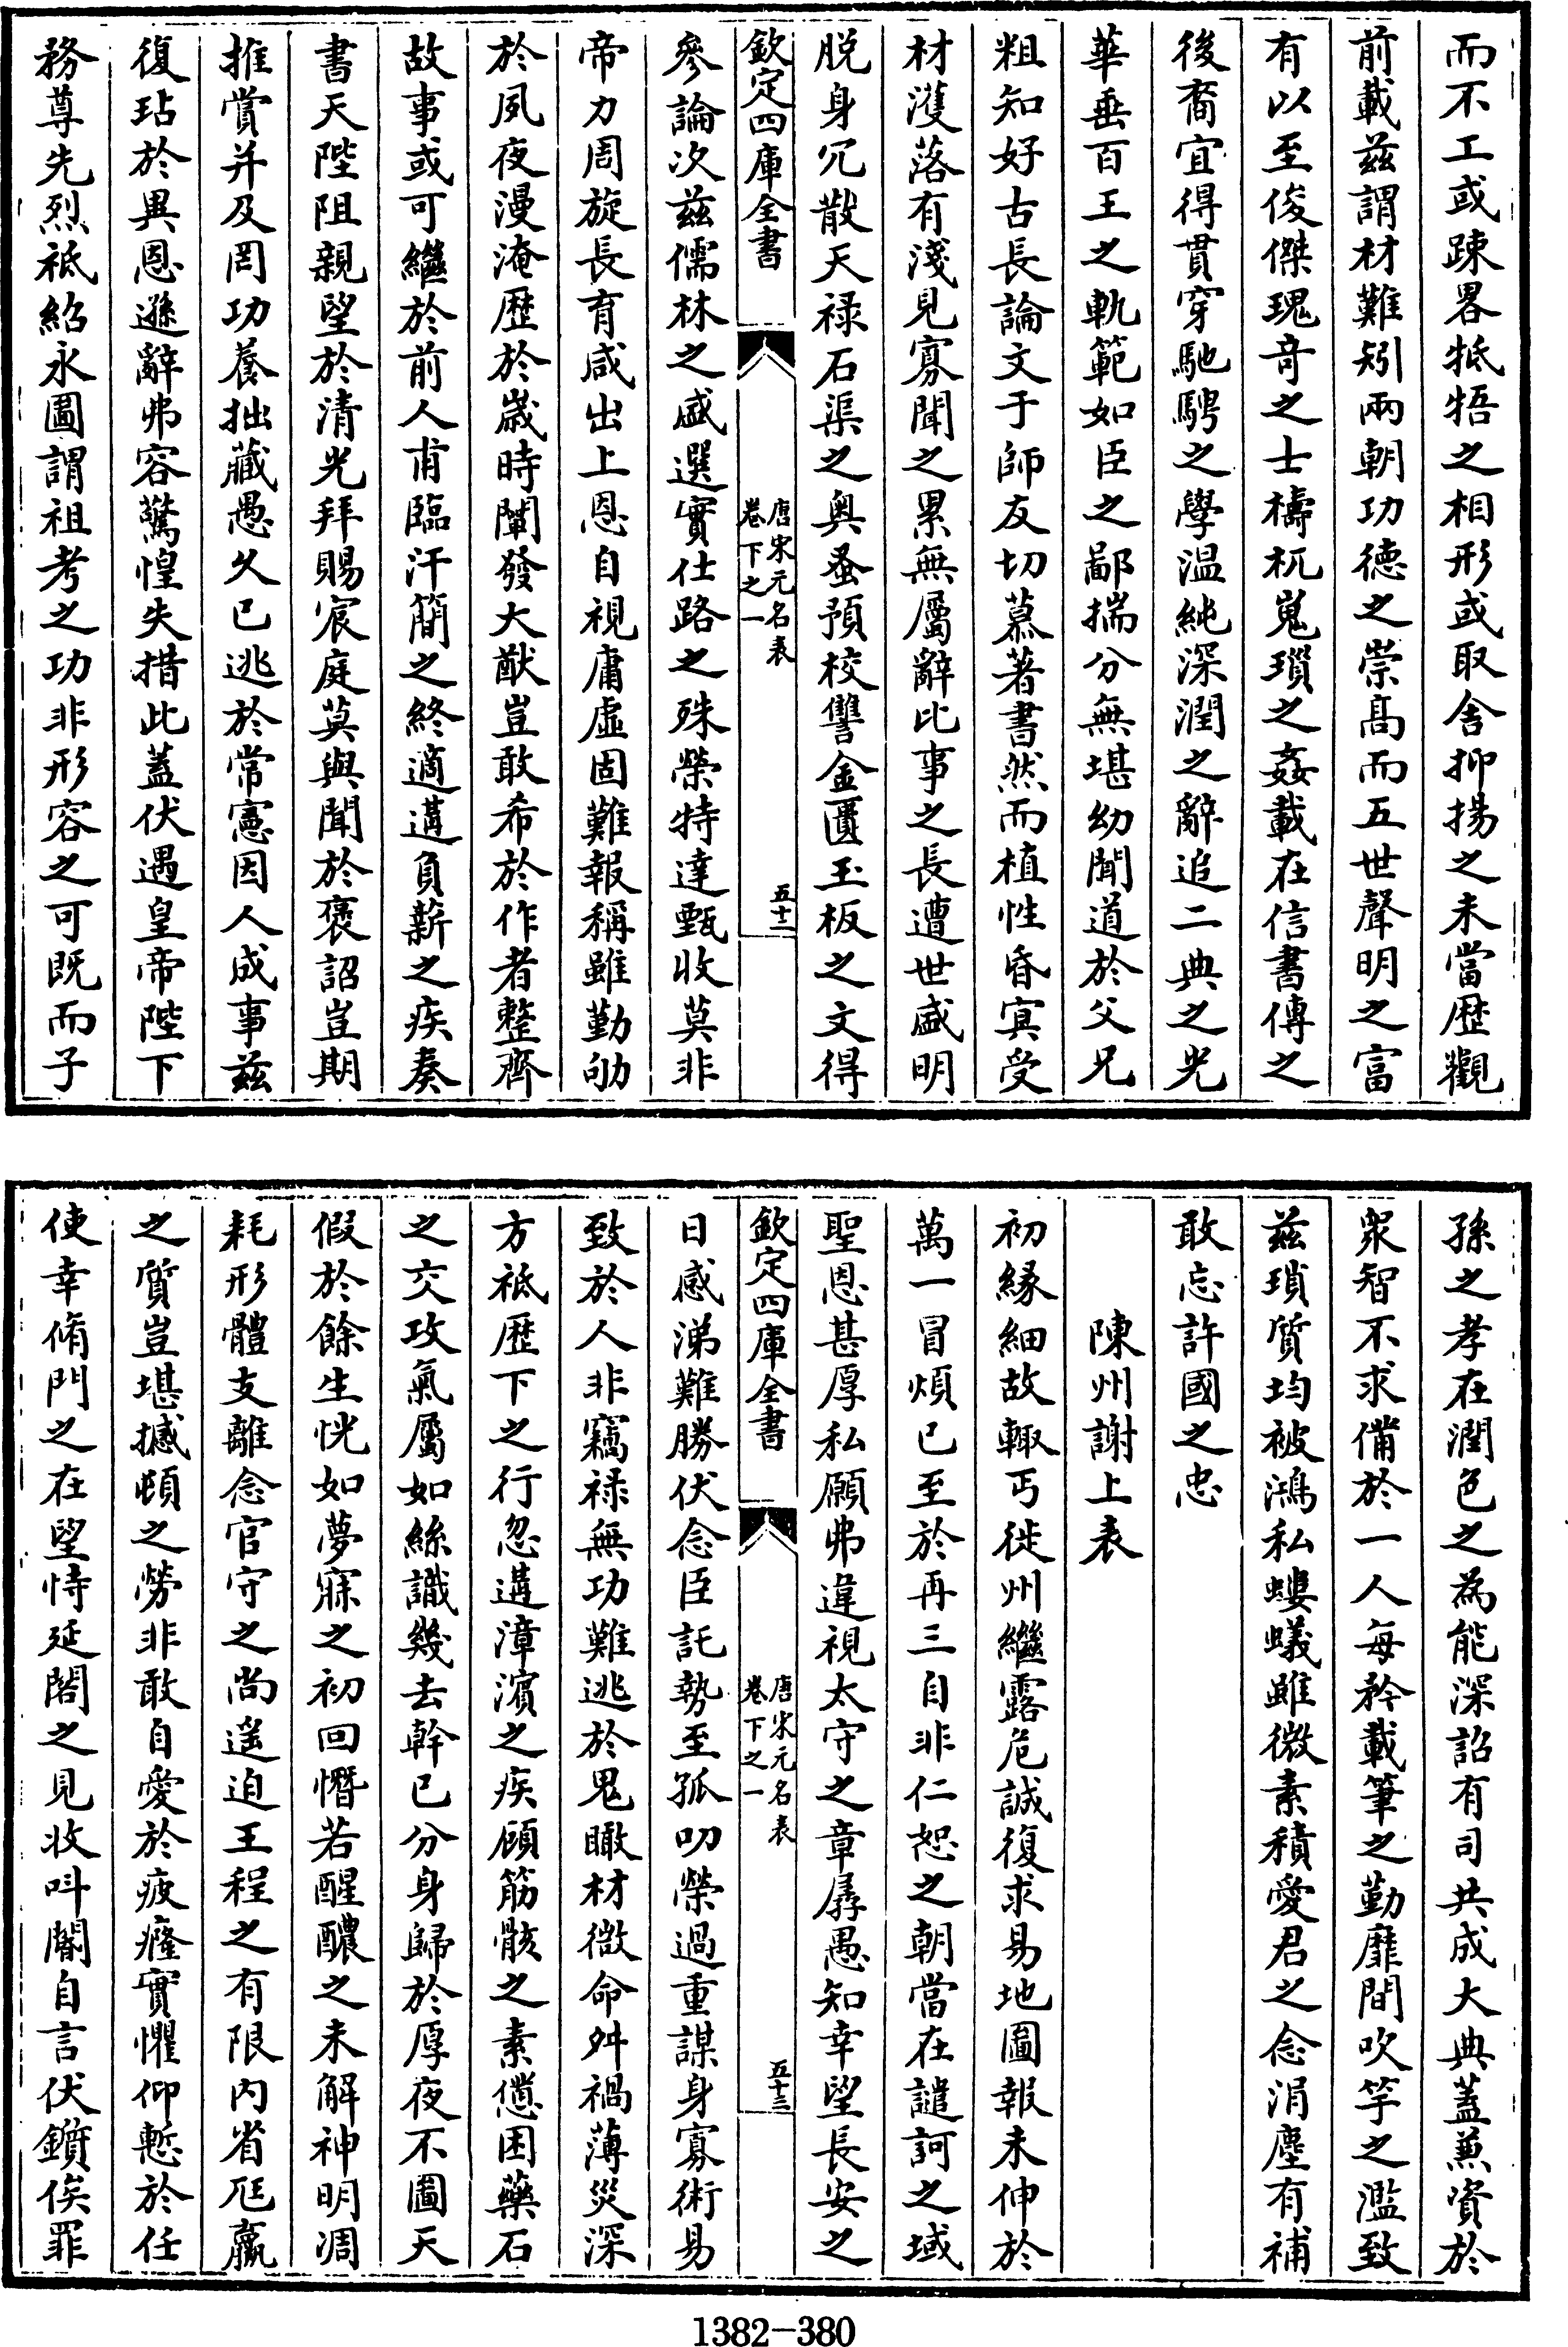 而不工或踈畧牴牾之相形或取舍抑揚之未當歴觀
前載兹謂材難矧兩朝功德之崇髙而五世聲明之富
有以至俊傑瑰竒之士檮杌嵬瑣之姦載在信書傳之
後裔宜得貫穿馳騁之學温純深潤之辭追二典之光
華垂百王之軌範如臣之鄙揣分無堪幼聞道於父兄
粗知好古長論文于師友切慕著書然而植性昏㝠受
材濩落有淺見寡聞之累無屬辭比事之長遭世盛明
脱身冗散天禄石渠之奥蚤預校讐金匱玉板之文得
欽定四庫全書
唐宋元名表
卷下之一
五十二
參論次兹儒林之盛選實仕路之殊榮特達甄收莫非
帝力周旋長育咸出上恩自視庸虚固難報稱雖勤劬
於夙夜漫淹歴於嵗時闡發大猷豈敢希於作者整齊
故事或可繼於前人甫臨汗簡之終適遘負薪之疾奏
書天陛阻親望於清光拜賜宸庭莫與聞於褒詔豈期
推賞并及罔功養拙藏愚久已逃於常憲因人成事兹
復玷於異恩遜辭弗容驚惶失措此蓋伏遇皇帝陛下
務尊先烈祗紹永圖謂祖考之功非形容之可既而子
孫之孝在潤色之為能深詔有司共成大典蓋兼資於
衆智不求備於一人每矜載筆之勤靡間吹竽之濫致
兹瑣質均被鴻私螻蟻雖微素積愛君之念涓塵有補
敢忘許國之忠
陳州謝上表
初縁細故輙丐徙州繼露危誠復求易地圖報未伸於
萬一冒煩已至於再三自非仁恕之朝當在譴訶之域
聖恩甚厚私願弗違視太守之章孱愚知幸望長安之
欽定四庫全書
唐宋元名表
卷下之一
五十三
日感涕難勝伏念臣託勢至孤叨榮過重謀身寡術易
致於人非竊禄無功難逃於鬼瞰材微命舛禍薄災深
方祗歴下之行忽遘漳濱之疾顧筋骸之素憊困藥石
之交攻氣屬如絲識幾去幹已分身歸於厚夜不圖天
假於餘生恍如夢寐之初回憯若酲醲之未解神明凋
耗形體支離念官守之尚遥迫王程之有限内省尫羸
之質豈堪撼頓之勞非敢自愛於疲癃實懼仰慙於任
使幸脩門之在望恃延閣之見收呌閽自言伏鑕俟罪
1382-380